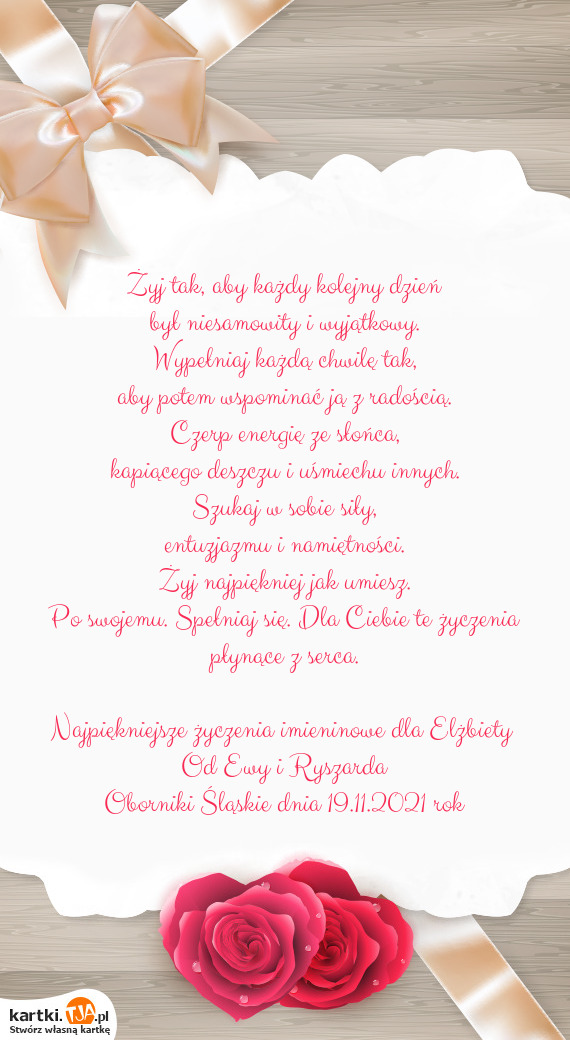 Żyj tak, aby każdy kolejny dzień
był niesamowity i wyjątkowy.
Wypełniaj każdą chwilę tak,
aby potem wspominać ją z radością.
Czerp energię ze słońca,
kapiącego deszczu i uśmiechu innych.
Szukaj w sobie siły,
entuzjazmu i namiętności.
Żyj najpiękniej jak umiesz.
Po swojemu. Spełniaj się. Dla Ciebie te życzenia
płynące z serca.
Najpiękniejsze życzenia imieninowe dla Elżbiety
Od Ewy i Ryszarda
Oborniki Śląskie dnia 19.11.2021 rok
kartki.TJA.pl
Stwórz własną kartkę